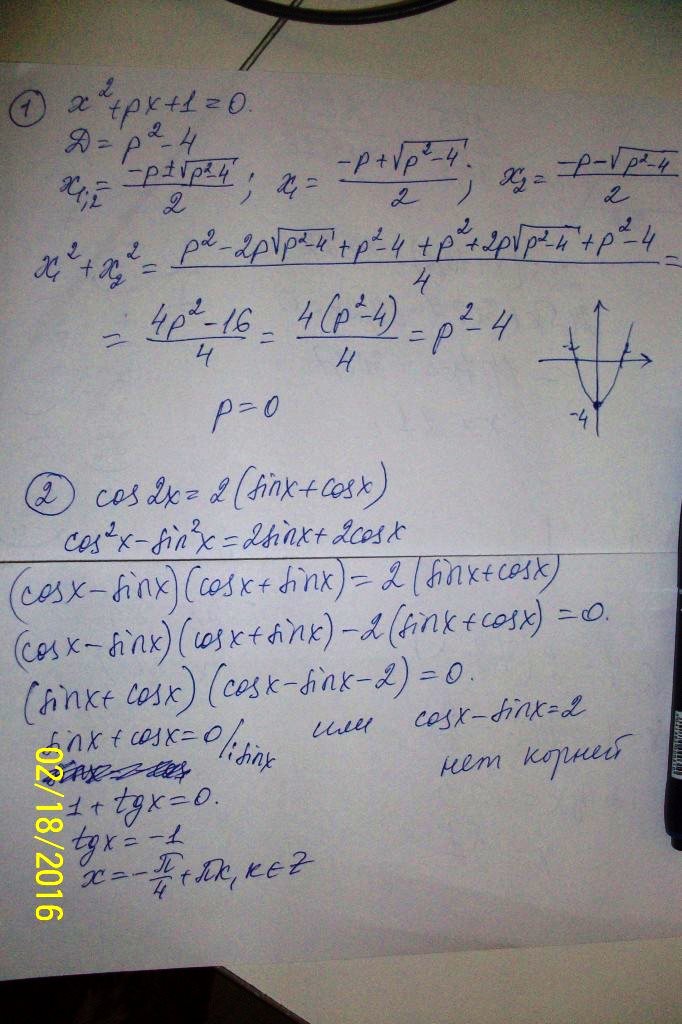 ① x² + px + 1 = 0.
D = p² - 4
x₁;₂ = (-p ± √(p² - 4))/2 ; x₁ = (-p + √(p² - 4))/2 ; x₂ = (-p - √(p² - 4))/2
x₁² + x₂² = (p² - 2p√(p² - 4) + p² - 4 + p² + 2p√(p² - 4) + p² - 4)/4 =
= (4p² - 16)/4 = (4(p² - 4))/4 = p² - 4
-2 2
-4
p = 0
② cos 2x = 2(sinx + cosx)
cos²x - sin²x = 2sinx + 2cosx
(cosx - sinx)(cosx + sinx) = 2(sinx + cosx)
(cosx - sinx)(cosx + sinx) - 2(sinx + cosx) = 0.
(sinx + cosx)(cosx - sinx - 2) = 0.
sinx + cosx = 0 /: sinx или cosx - sinx = 2
нет корней
1 + tgx = 0.
tgx = -1
x = -π/4 + πk, k ∈ Z
02/18/2016